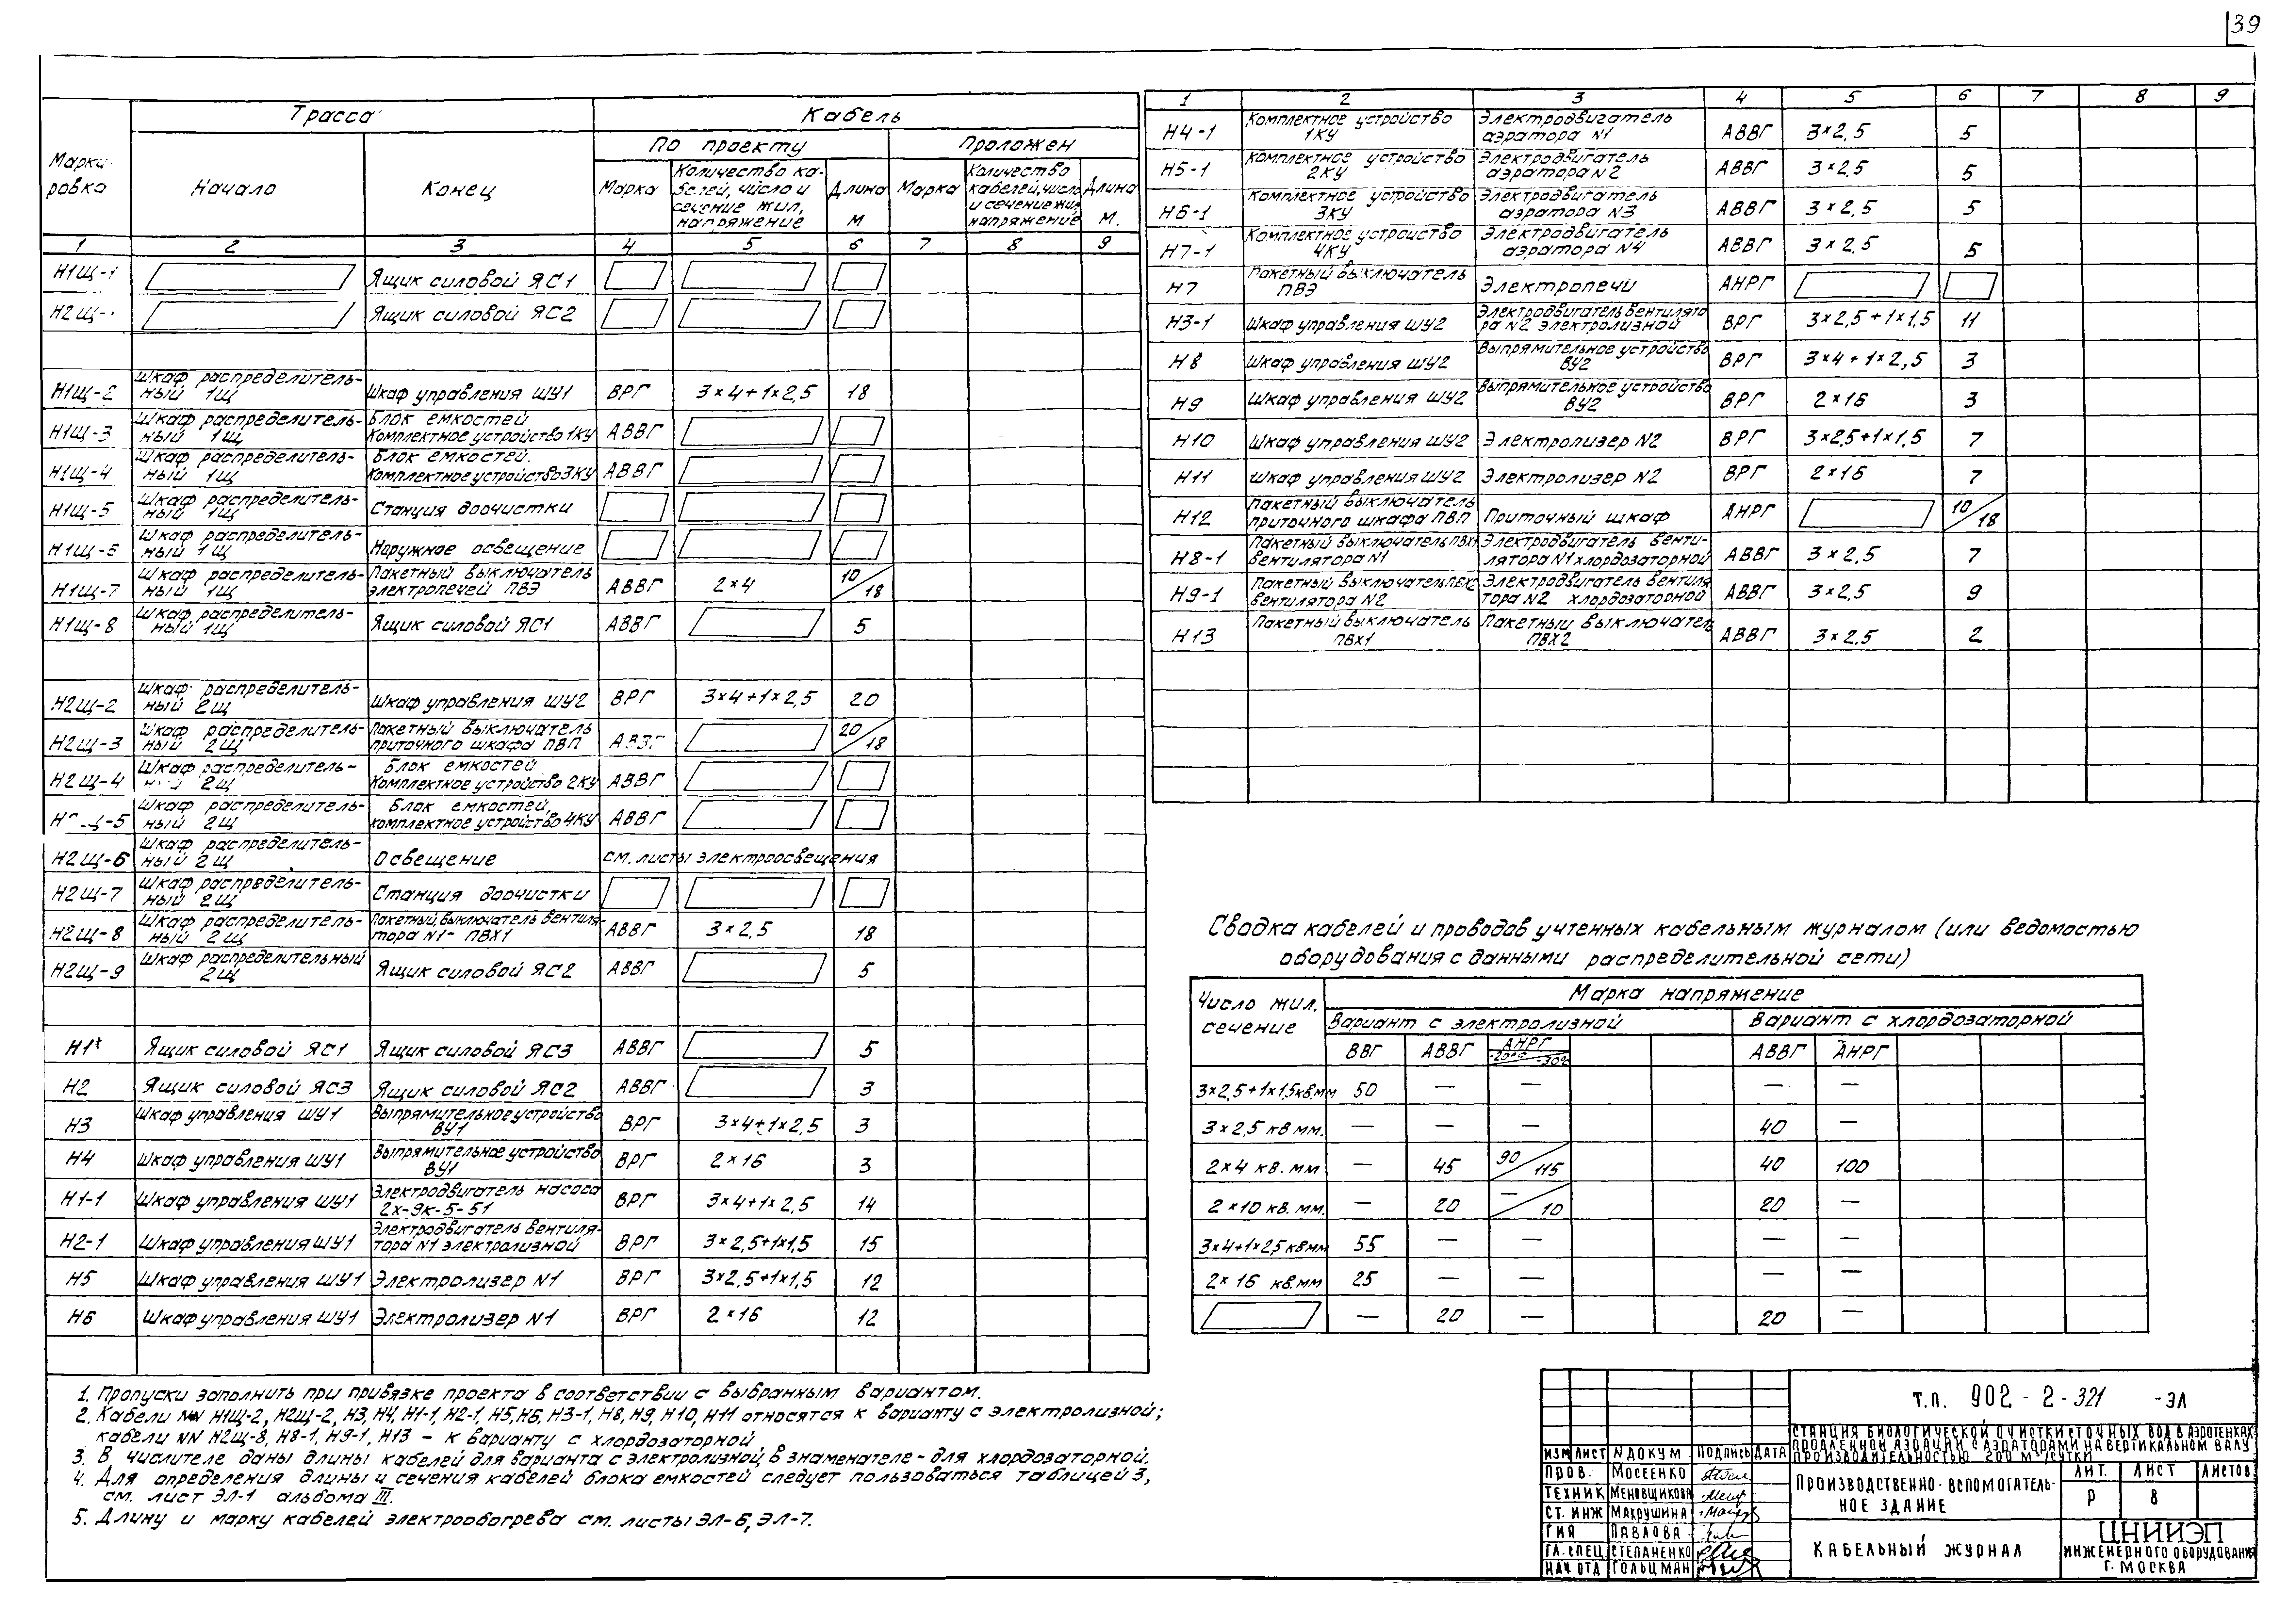 39
Марки-ровка | Трасса | Кабель
Начало | Конец | По проекту | Проложен
Марка | Количество ка-белей, число и сечение жил, напряжение | Длина м | Марка | Количество кабелей, число и сечение жил напряжение | Длина м.
1 | 2 | 3 | 4 | 5 | 6 | 7 | 8 | 9
Н1Щ-1 | Ящик силовой ЯС1
Н2Щ- | Ящик силовой ЯС2
Н1Щ-2 | Шкаф распределитель-ный 1Щ | Шкаф управления ШУ1 | ВРГ | 3×4+1×2,5 | 18
Н1Щ-3 | Шкаф распределитель-ный 1Щ | Блок емкостей Комплектное устройство 1КУ | АВВГ
Н1Щ-4 | Шкаф распределитель-ный 1Щ | Блок емкостей. Комплектное устройство 3КУ | АВВГ
Н1Щ-5 | Шкаф распределитель-ный 1Щ | Станция доочистки
Н1Щ-6 | Шкаф распределитель-ный 1Щ | Наружное освещение
Н1Щ-7 | Шкаф распределитель-ный 1Щ | Пакетный выключатель электропечей ПВЭ | АВВГ | 2×4 | 10/18
Н1Щ-8 | Шкаф распределитель-ный 1Щ | Ящик силовой ЯС1 | АВВГ | 5
Н2Щ-2 | Шкаф распределитель-ный 2Щ | Шкаф управления ШУ2 | ВРГ | 3×4+1×2,5 | 20
Н2Щ-3 | Шкаф распределитель-ный 2Щ | Пакетный выключатель приточного шкафа ПВП | АВВГ | 20/18
Н2Щ-4 | Шкаф распределитель- 2Щ | Блок емкостей Комплектное устройство 2КУ | АВВГ
-5 | Шкаф распределитель-ный 2Щ | Блок емкостей, комплектное устройство 4КУ | АВВГ
Н2Щ-6 | Шкаф распределитель-ный 2Щ | Освещение | см. листы электроосвещения
Н2Щ-7 | Шкаф распределитель-ный 2Щ | Станция доочистки
Н2Щ-8 | Шкаф распределитель-ный 2Щ | Пакетный выключатель вентиля-тора N1- ПВХ1 | АВВГ | 3×2,5 | 18
Н2Щ-9 | Шкаф распределительный 2Щ | Ящик силовой ЯС2 | АВВГ | 5
Н1 | Ящик силовой ЯС1 | Ящик силовой ЯС3 | АВВГ | 5
Н2 | Ящик силовой ЯС3 | Ящик силовой ЯС2 | АВВГ | 3
Н3 | Шкаф управления ШУ1 | Выпрямительное устройство ВУ1 | ВРГ | 3×4+1×2,5 | 3
Н4 | Шкаф управления ШУ1 | Выпрямительное устройство ВУ1 | ВРГ | 2×16 | 3
Н1-1 | Шкаф управления ШУ1 | Электродвигатель насоса 2х-9к-5-51 | ВРГ | 3×4+1×2,5 | 14
Н2-1 | Шкаф управления ШУ1 | Электродвигатель вентиля-тора N1 электролизной | ВРГ | 3×2,5+1×1,5 | 15
Н5 | Шкаф управления ШУ1 | Электролизер N1 | ВРГ | 3×2,5+1×1,5 | 12
Н6 | Шкаф управления ШУ1 | Электролизер N1 | ВРГ | 2×16 | 12
1 | 2 | 3 | 4 | 5 | 6 | 7 | 8 | 9
Н4-1 | Комплектное устройство 1КУ | Электродвигатель аэратора N1 | АВВГ | 3×2,5 | 5
Н5-1 | Комплектное устройство 2КУ | Электродвигатель аэратора N2 | АВВГ | 3×2,5 | 5
Н6-1 | Комплектное устройство 3КУ | Электродвигатель аэратора N3 | АВВГ | 3×2,5 | 5
Н7-1 | Комплектное устройство 4КУ | Электродвигатель аэратора N4 | АВВГ | 3×2,5 | 5
Н7 | Пакетный выключатель ПВЭ | Электропечи | АНРГ
Н3-1 | Шкаф управления ШУ2 | Электродвигатель вентилято ра N2 электролизной | ВРГ | 3×2,5+1×1,5 | 11
Н8 | Шкаф управления ШУ2 | Выпрямительное устройство ВУ2 | ВРГ | 3×4+1×2,5 | 3
Н9 | Шкаф управления ШУ2 | Выпрямительное устройство ВУ2 | ВРГ | 2×16 | 3
Н10 | Шкаф управления ШУ2 | Электролизер N2 | ВРГ | 3×2,5+1×1,5 | 7
Н11 | Шкаф управления ШУ2 | Электролизер N2 | ВРГ | 2×16 | 7
Н12 | Пакетный выключатель приточного шкафа ПВП | Приточный шкаф | АНРГ | 10/18
Н8-1 | Пакетный выключатель ПВХ1 вентилятора N1 | Электродвигатель венти-лятора N1 хлордозаторной | АВВГ | 3×2,5 | 7
Н9-1 | Пакетный выключатель ПВХ2 вентилятора N2 | Электродвигатель вентиля тора N2 хлордозаторной | АВВГ | 3×2,5 | 9
Н13 | Пакетный выключатель ПВХ1 | Пакетный выключатель ПВХ2 | АВВГ | 3×2,5 | 2
Сводка кабелей и проводов учтенных кабельным журналом (или ведомостью
оборудования с данными распределительной сети)
Число жил. сечение | Марка напряжение
Вариант с электролизной | Вариант с хлордозаторной
ВВГ | АВВГ | АНРГ -20° -30° | АВВГ | АНРГ
3×2,5+1×1,5 кв.мм | 50 | — | — | — | —
3×2,5 кв мм. | — | — | — | 40 | —
2×4 кв. мм | — | 45 | 90/115 | 40 | 100
2×10 кв. мм. | — | 20 | —/10 | 20 | —
3×4+1×2,5 кв мм | 55 | — | — | — | —
2×16 кв.мм | 25 | — | — | — | —
— | 20 | — | 20 | —
1. Пропуски заполнить при привязке проекта в соответствии с выбранным вариантом.
2. Кабели NN Н1Щ-2, Н2Щ-2, Н3, Н4, Н1-1, Н2-1, Н5, Н6, Н3-1, Н8, Н9, Н10, Н11 относятся к варианту с электролизной;
кабели NN Н2Щ-8, Н8-1, Н9-1, Н13 – к варианту с хлордозаторной
3. В числителе даны длины кабелей для варианта с электролизной, в знаменателе - для хлордозаторной.
4. Для определения длины и сечения кабелей блока емкостей следует пользоваться таблицей 3,
см. лист ЭЛ-1 альбома III.
5. Длину и марку кабелей электрообогрева см. листы ЭЛ-6, ЭЛ-7.
Т.п. 902-2-321 -ЭЛ
СТАНЦИЯ БИОЛОГИЧЕСКОЙ ОЧИСТКИ СТОЧНЫХ ВОД В АЭРОТЕНКАХ
ПРОДЛЕННОЙ АЭРАЦИИ С АЭРАТОРАМИ НА ВЕРТИКАЛЬНОМ ВАЛУ
ПРОИЗВОДИТЕЛЬНОСТЬЮ 200 м³/СУТКИ
ИЗМ ЛИСТ N ДОКУМ ПОДПИСЬ ДАТА
ПРОВ. МОСЕЕНКО
ТЕХНИК МЕНОВЩИКОВА
СТ. ИНЖ МАКРУШИНА
ГИП ПАВЛОВА
ГЛ. СПЕЦ СТЕПАНЕНКО
НАЧ ОТД ГОЛЬЦМАН
ПРОИЗВОДСТВЕННО-ВСПОМОГАТЕЛЬ-
НОЕ ЗДАНИЕ
ЛИТ. ЛИСТ ЛИСТОВ
Р 8
КАБЕЛЬНЫЙ ЖУРНАЛ
ЦНИИЭП
ИНЖЕНЕРНОГО ОБОРУДОВАНИЯ
Г. МОСКВА